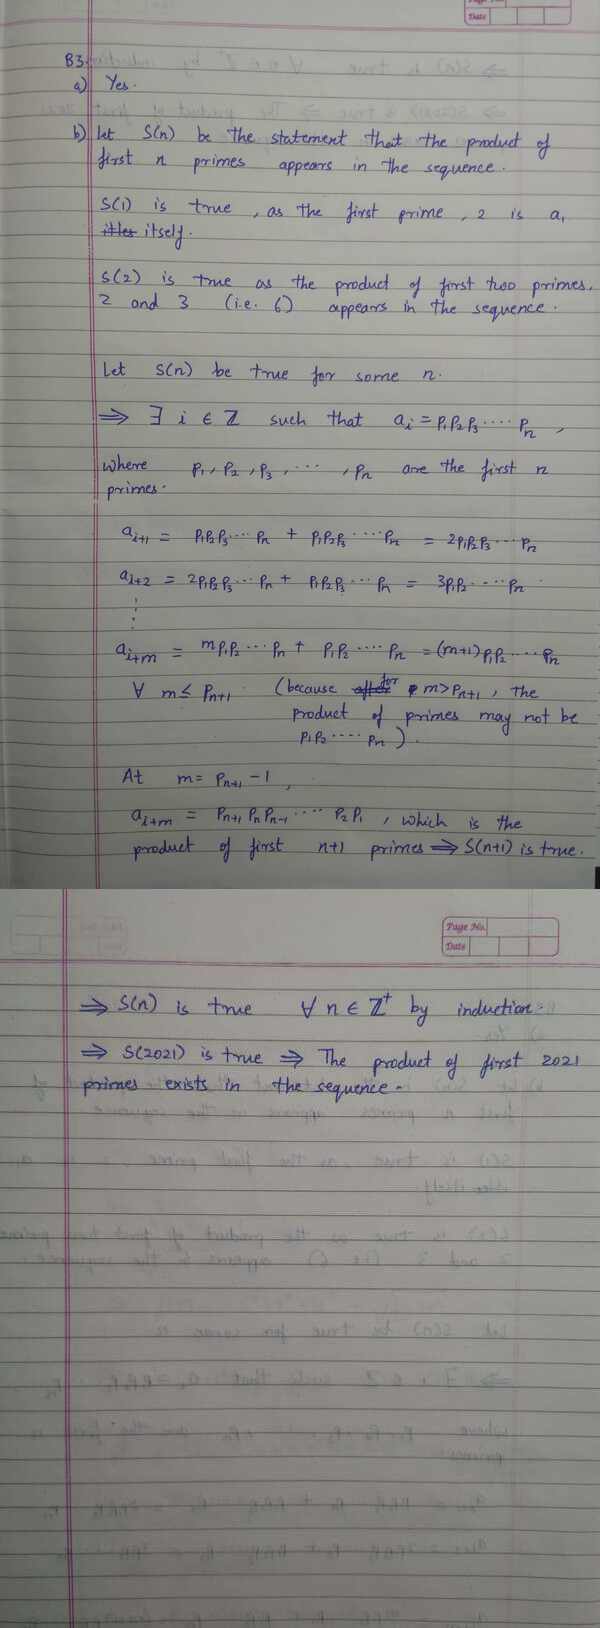 Page No.
Date
B3.
a) Yes.
b) Let S(n) be the statement that the product of
first n primes appears in the sequence.
S(1) is true, as the first prime, 2 is a₁
itself.
S(2) is true as the product of first two primes,
2 and 3 (i.e. 6) appears in the sequence.
Let S(n) be true for some n.
⇒ ∃ i ∈ ℤ such that aᵢ = p₁p₂p₃....pₙ,
where p₁, p₂, p₃, ..., pₙ are the first n
primes.
aᵢ₊₁ = p₁p₂p₃...pₙ + p₁p₂p₃....pₙ = 2p₁p₂p₃...pₙ
aᵢ₊₂ = 2p₁p₂p₃...pₙ + p₁p₂p₃...pₙ = 3p₁p₂....pₙ
⋮
aᵢ₊ₘ = mp₁p₂...pₙ + p₁p₂....pₙ = (m+1)p₁p₂....pₙ
∀ m ≤ pₙ₊₁ (because for m>pₙ₊₁, the
product of primes may not be
p₁p₂....pₙ).
At m = pₙ₊₁ -1,
aᵢ₊ₘ = pₙ₊₁pₙpₙ₋₁....p₂p₁, which is the
product of first n+1 primes ⇒ S(n+1) is true.
Page No.
Date
⇒ S(n) is true ∀ n ∈ ℤ⁺ by induction.
⇒ S(2021) is true ⇒ The product of first 2021
primes exists in the sequence.